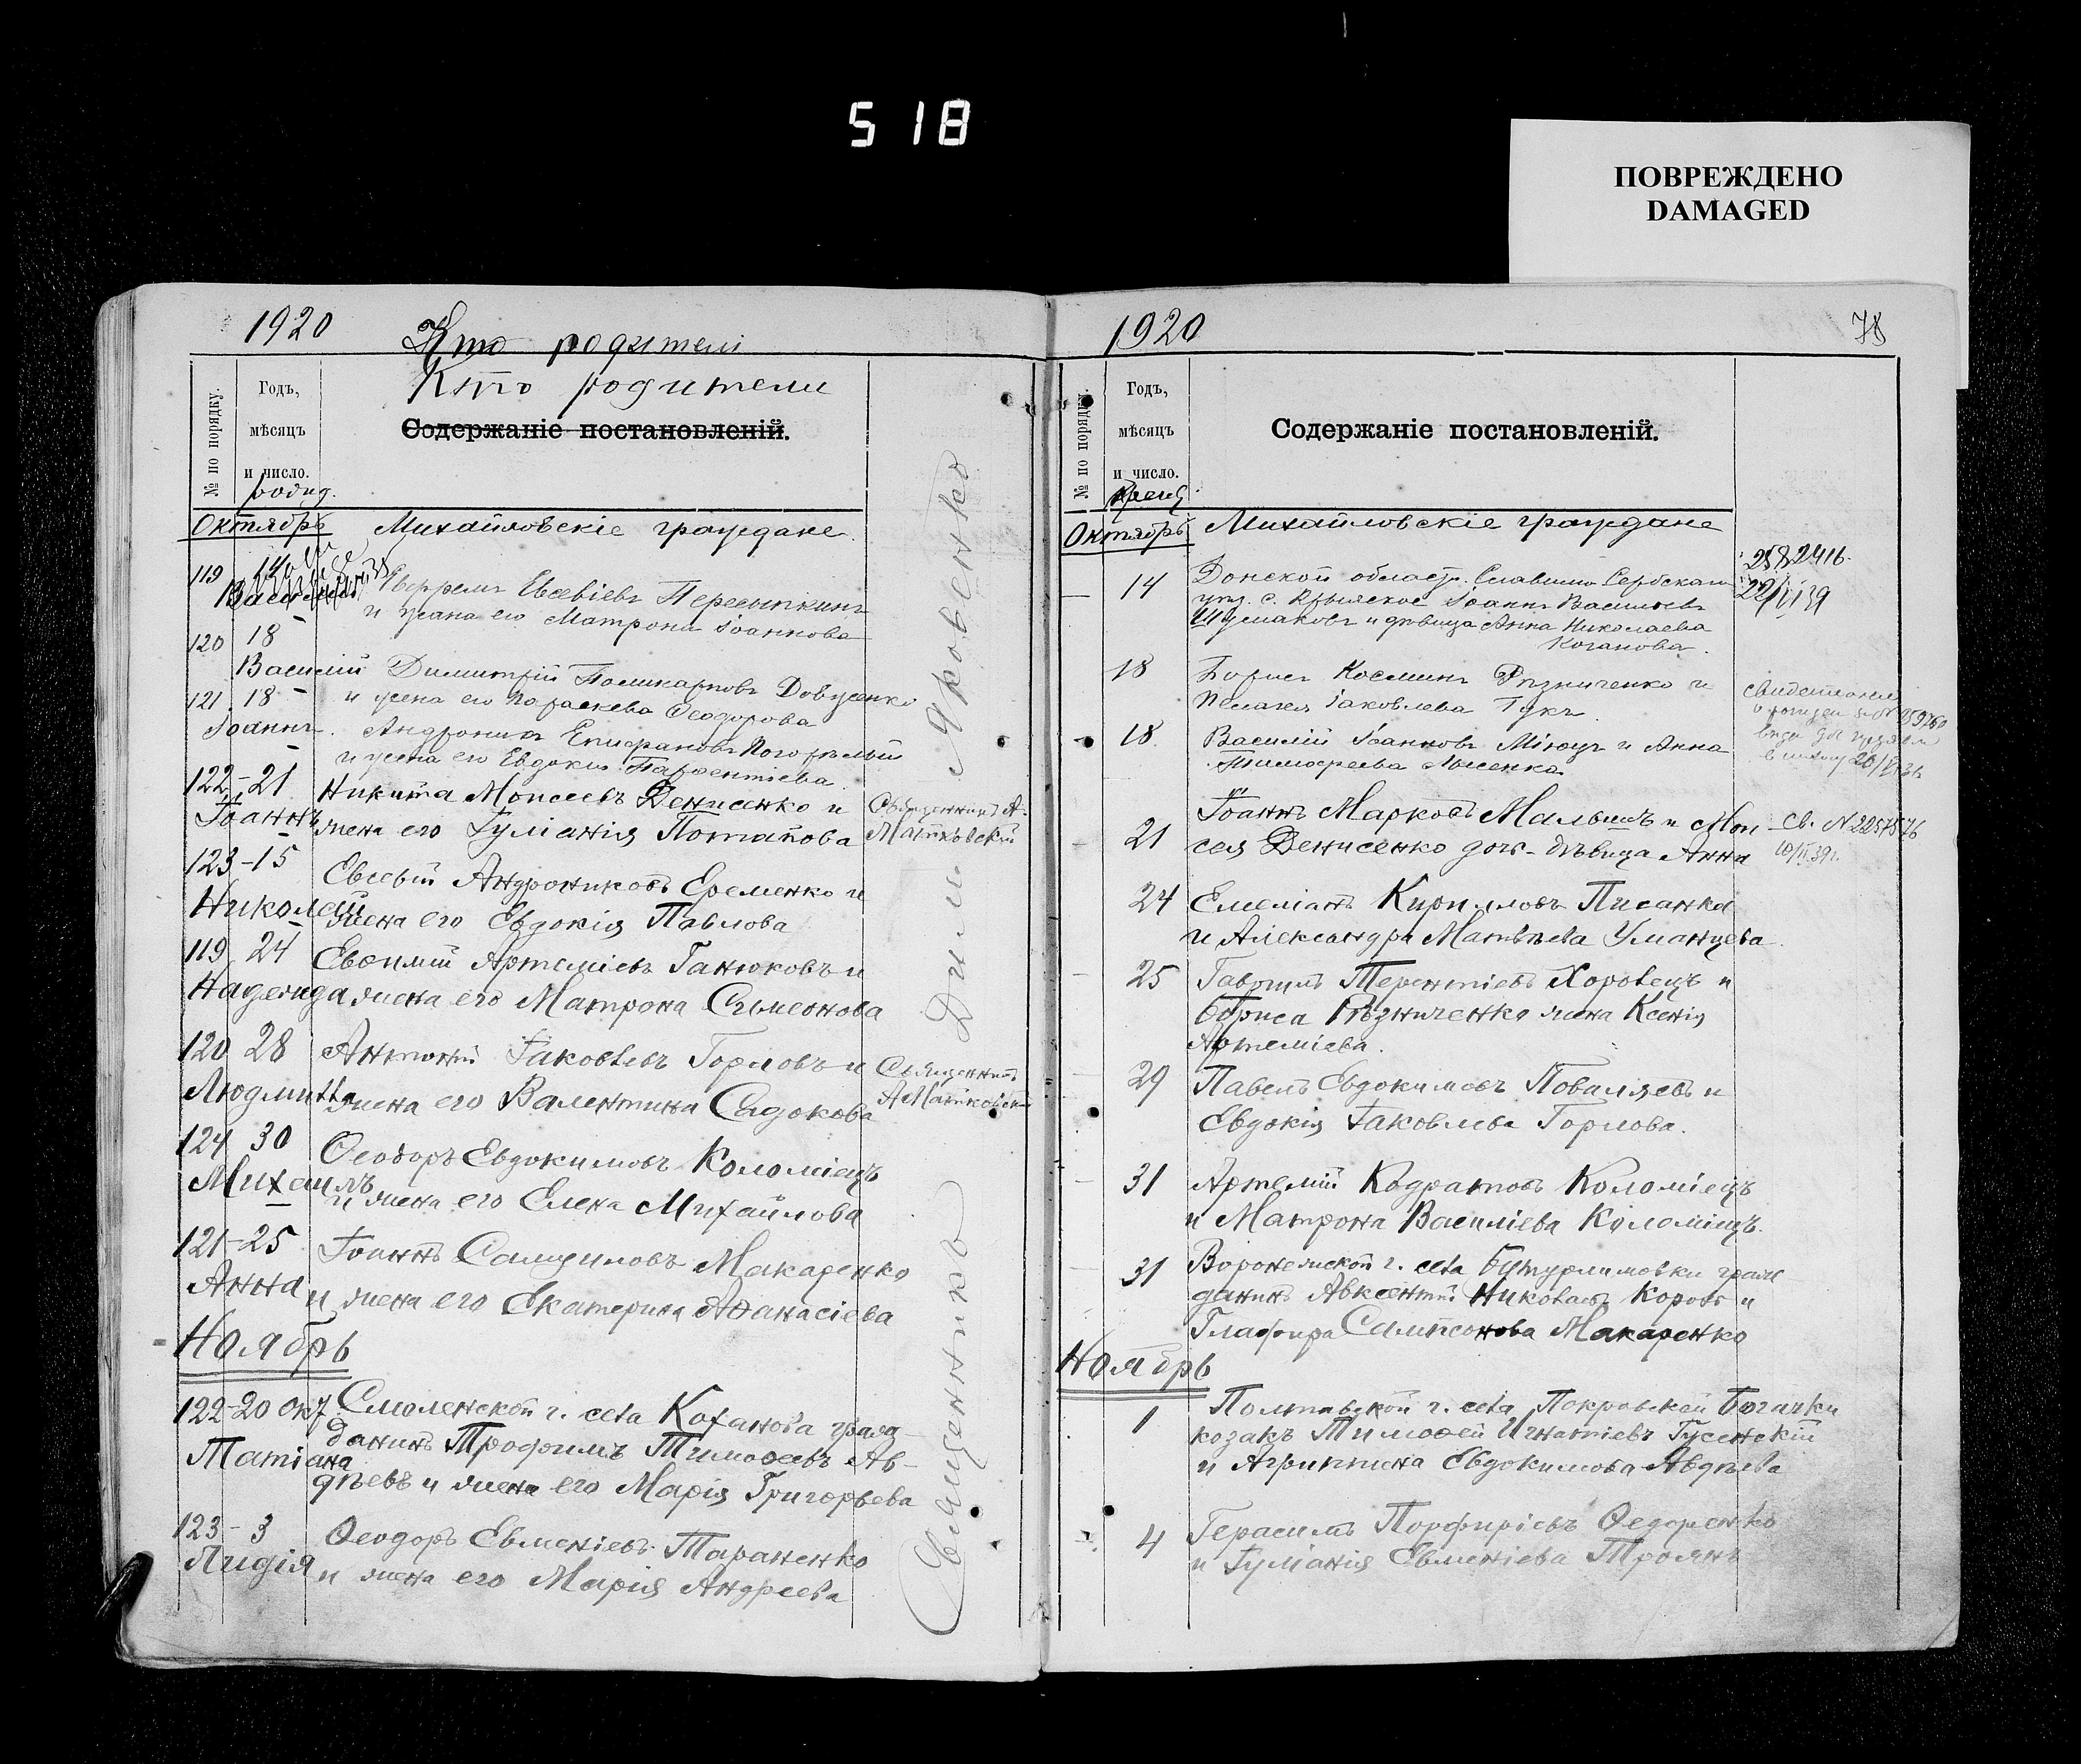 518
ПОВРЕЖДЕНО
DAMAGED
1920
Кто родители
Кто родители
№ по порядку.
Годъ,
мѣсяцъ
и число.
родид.
Содержаніе постановленій.
Октябрь Михайловскіе граждане
119 14
Василій Евсевіевъ Пересыпкинъ
и жена его Матрона Іоаннова
120 18
Василій Димитрій Поликарповъ Довженко
и жена его Параскева Ѳеодорова
121 18
Іоаннъ. Андроникъ Епифановъ Погорѣлый
и жена его Евдокія Парѳентіева
122-21 Никита Моисеевъ Денисенко и
Іоаннъ жена его Іуліанія Потапова
Священникъ А.
Матковскій
123-15 Евсевій Андрониковъ Еременко и
Николай жена его Евдокія Павлова
119 24 Евѳимій Артеміевъ Ганюковъ и
Надежда жена его Матрона Сѵмеонова
120 28 Антоній Іаковлевъ Горловъ и
Людмилла жена его Валентина Садокова
Священникъ
А Матковскій
124 30 Ѳеодоръ Евдокимовъ Коломіецъ
Михаилъ и жена его Елена Михайлова
121-25 Іоаннъ Самуиловъ Макаренко
Анна и жена его Екатерина Аѳанасіева
Ноябрь
122-20 окт Смоленской г. села Коханова граж
данинъ Трофимъ Тимоѳеевъ Ав-
Татіана
дѣевъ и жена его Марія Григорьева
123-3 Ѳеодоръ Евменіевъ Тараненко
Лидія и жена его Марія Андреева
Священникъ Дим. Яковенко
1920
78
№ по порядку.
Годъ,
мѣсяцъ
и число.
крещ.
Содержаніе постановленій.
Октябрь Михайловскіе граждане
14 Донской област. Славяно Сербскаго
уѣз. с. Крымское Іоаннъ Васильевъ
и дѣвица Анна Николаева
Коганова.
2582416.
22/II 39
18 Борисъ Косминъ Рѣзниченко и
Пелагея Іаковлева Гукъ.
18. Василій Іоанновъ Міюцъ и Анна
Тимоѳеева Лысенко
21 Іоаннъ Марковъ Малышъ и Мои
сея Денисенко доч- дѣвица Анна
Св. N 2257576
10/II 39 г.
24 Емеліанъ Кирилловъ Писанка
и Александра Матвѣева Уманцева.
25 Гавріилъ Терентіевъ Хоровецъ и
Бориса Рѣзниченко жена Ксенія
Артеміева.
29 Павелъ Евдокимовъ Поваляевъ и
Евдокія Іаковлева Горлова.
31 Артемій Кодратовъ Коломіецъ
и Матрона Василіева Коломіецъ.
31 Воронежской г. села Бутурлиновки граж
данинъ Авксентій Николаевъ Коровъ и
Глафира Сампсонова Макаренко
Ноябрь
1 Полтавской г. села Покровской Богачки
козакъ Тимоѳей Игнатіевъ Гусенскій
и Агриппина Евдокимова Авдѣева
4 Герасимъ Порфиріевъ Ѳедоренко
и Іуліанія Евменіева Троянъ